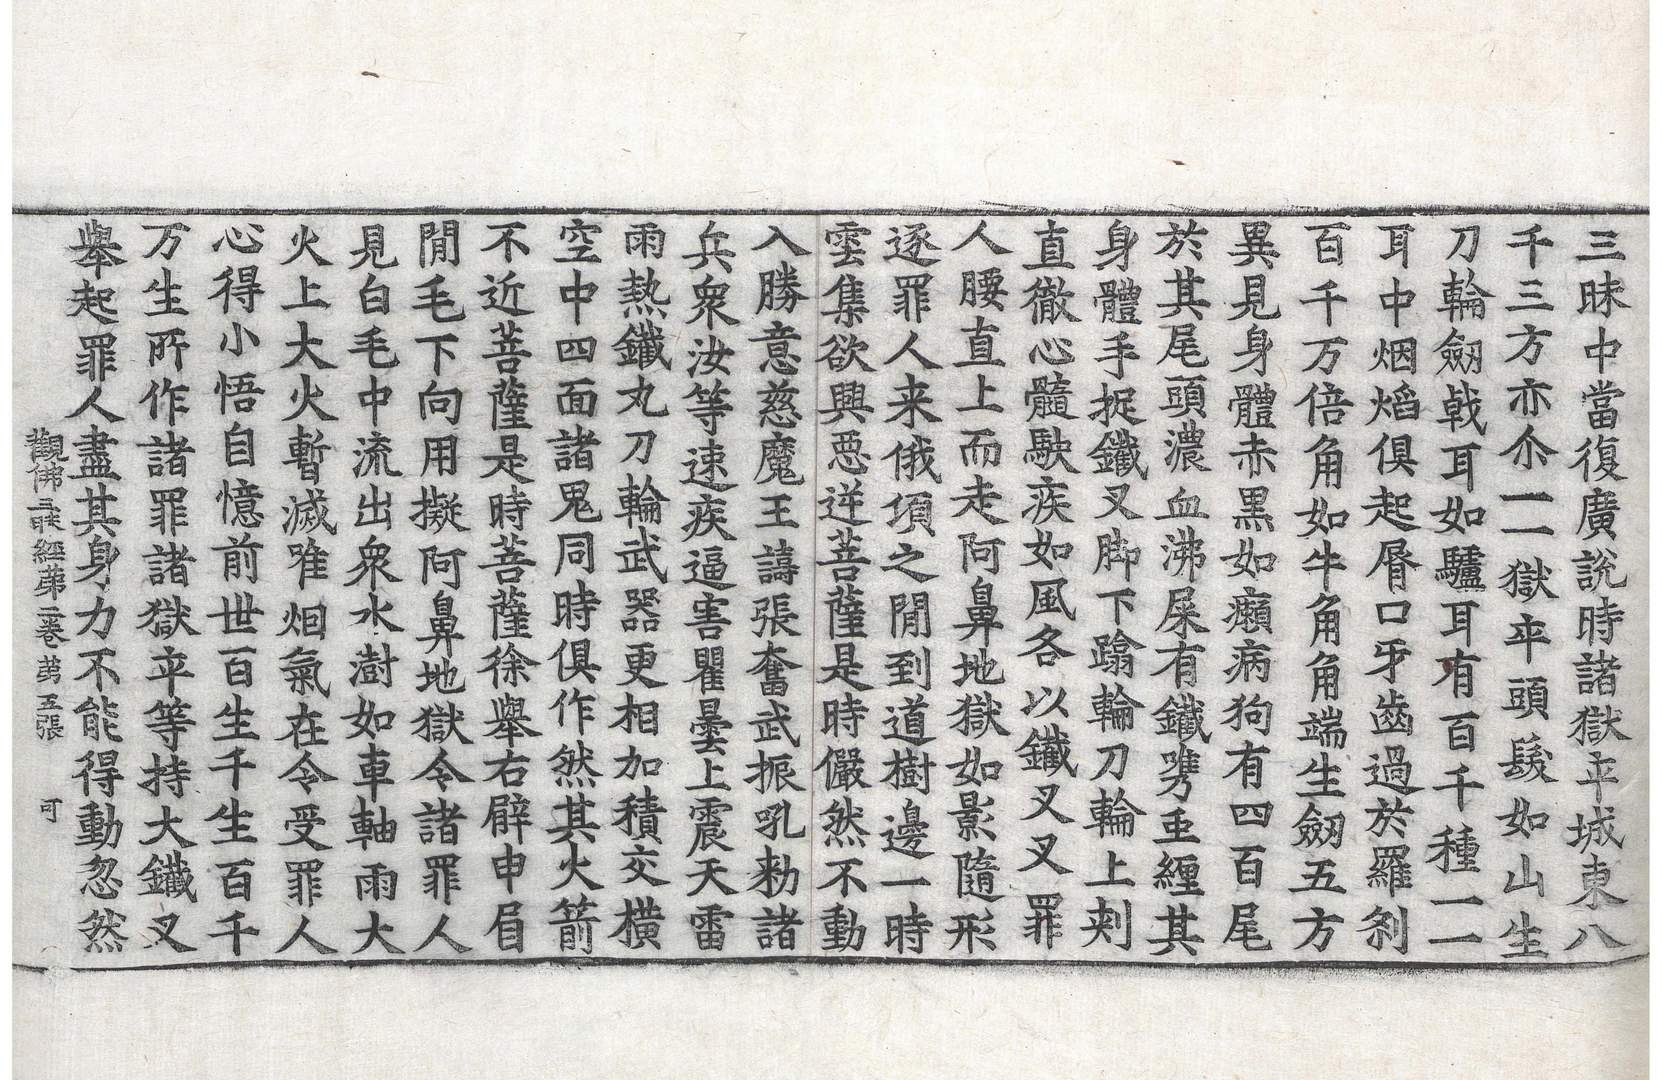 三昧中當復廣說時諸獄卒城東八
千三方亦尒一一獄卒頭髮如山生
刀輪劒戟耳如驢耳有百千種一一
耳中烟焰俱起脣口牙齒過於羅刹
百千万倍角如牛角角端生劒五方
異見身體赤黑如癩病狗有四百尾
於其尾頭濃血沸屎有鐵㭰垂纏其
身體手捉鐵叉脚下蹋輪刀輪上刾
直徹心髓駛疾如風各以鐵叉叉罪
人腰直上而走阿鼻地獄如影隨形
逐罪人来俄須之閒到道樹邊一時
雲集欲興惡逆菩薩是時儼然不動
入勝意慈魔王譸張奮武振吼勑諸
兵衆汝等速疾逼害瞿曇上震天雷
雨熱鐵丸刀輪武器更相加積交橫
空中四面諸鬼同時俱作然其火箭
不近菩薩是時菩薩徐舉右臂申眉
閒毛下向用擬阿鼻地獄令諸罪人
見白毛中流出衆水澍如車軸雨大
火上大火暫滅唯烟氣在令受罪人
心得小悟自憶前世百生千生百千
万生所作諸罪諸獄卒等持大鐵叉
舉起罪人盡其身力不能得動忽然
觀佛三昧經第二卷 第五張 可